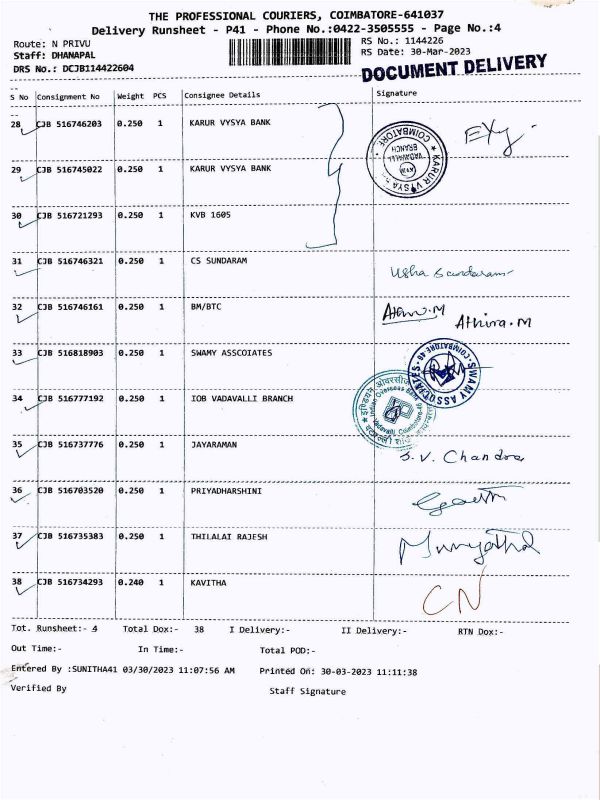 THE PROFESSIONAL COURIERS, COIMBATORE-641037
Delivery Runsheet - P41 - Phone No.:0422-3505555 - Page No.:4
Route: N PRIVU RS No.: 1144226
Staff: DHANAPAL RS Date: 30-Mar-2023
DRS No.: DCJB114422604 DOCUMENT DELIVERY
S No Consignment No Weight PCS Consignee Details Signature
28 CJB 516746203 0.250 1 KARUR VYSYA BANK
29 CJB 516745022 0.250 1 KARUR VYSYA BANK
COIMBATORE KARUR VYSYA
VADAVALLI
BRANCH
30 CJB 516721293 0.250 1 KVB 1605
31 CJB 516746321 0.250 1 CS SUNDARAM Usha Sundaram
32 CJB 516746161 0.250 1 BM/BTC Athira.M
33 CJB 516818903 0.250 1 SWAMY ASSCOIATES
SWAMY ASSOCIATES COIMBATORE 46
34 CJB 516777192 0.250 1 IOB VADAVALLI BRANCH
Indian Overseas Bank
Vadavalli, Coimbatore
35 CJB 516737776 0.250 1 JAYARAMAN S.V. Chandra
36 CJB 516703520 0.250 1 PRIYADHARSHINI
37 CJB 516735383 0.250 1 THILALAI RAJESH
38 CJB 516734293 0.240 1 KAVITHA CN
Tot. Runsheet:- 4 Total Dox:- 38 I Delivery:- II Delivery:- RTN Dox:-
Out Time:- In Time:- Total POD:-
Entered By :SUNITHA41 03/30/2023 11:07:56 AM Printed On: 30-03-2023 11:11:38
Verified By Staff Signature